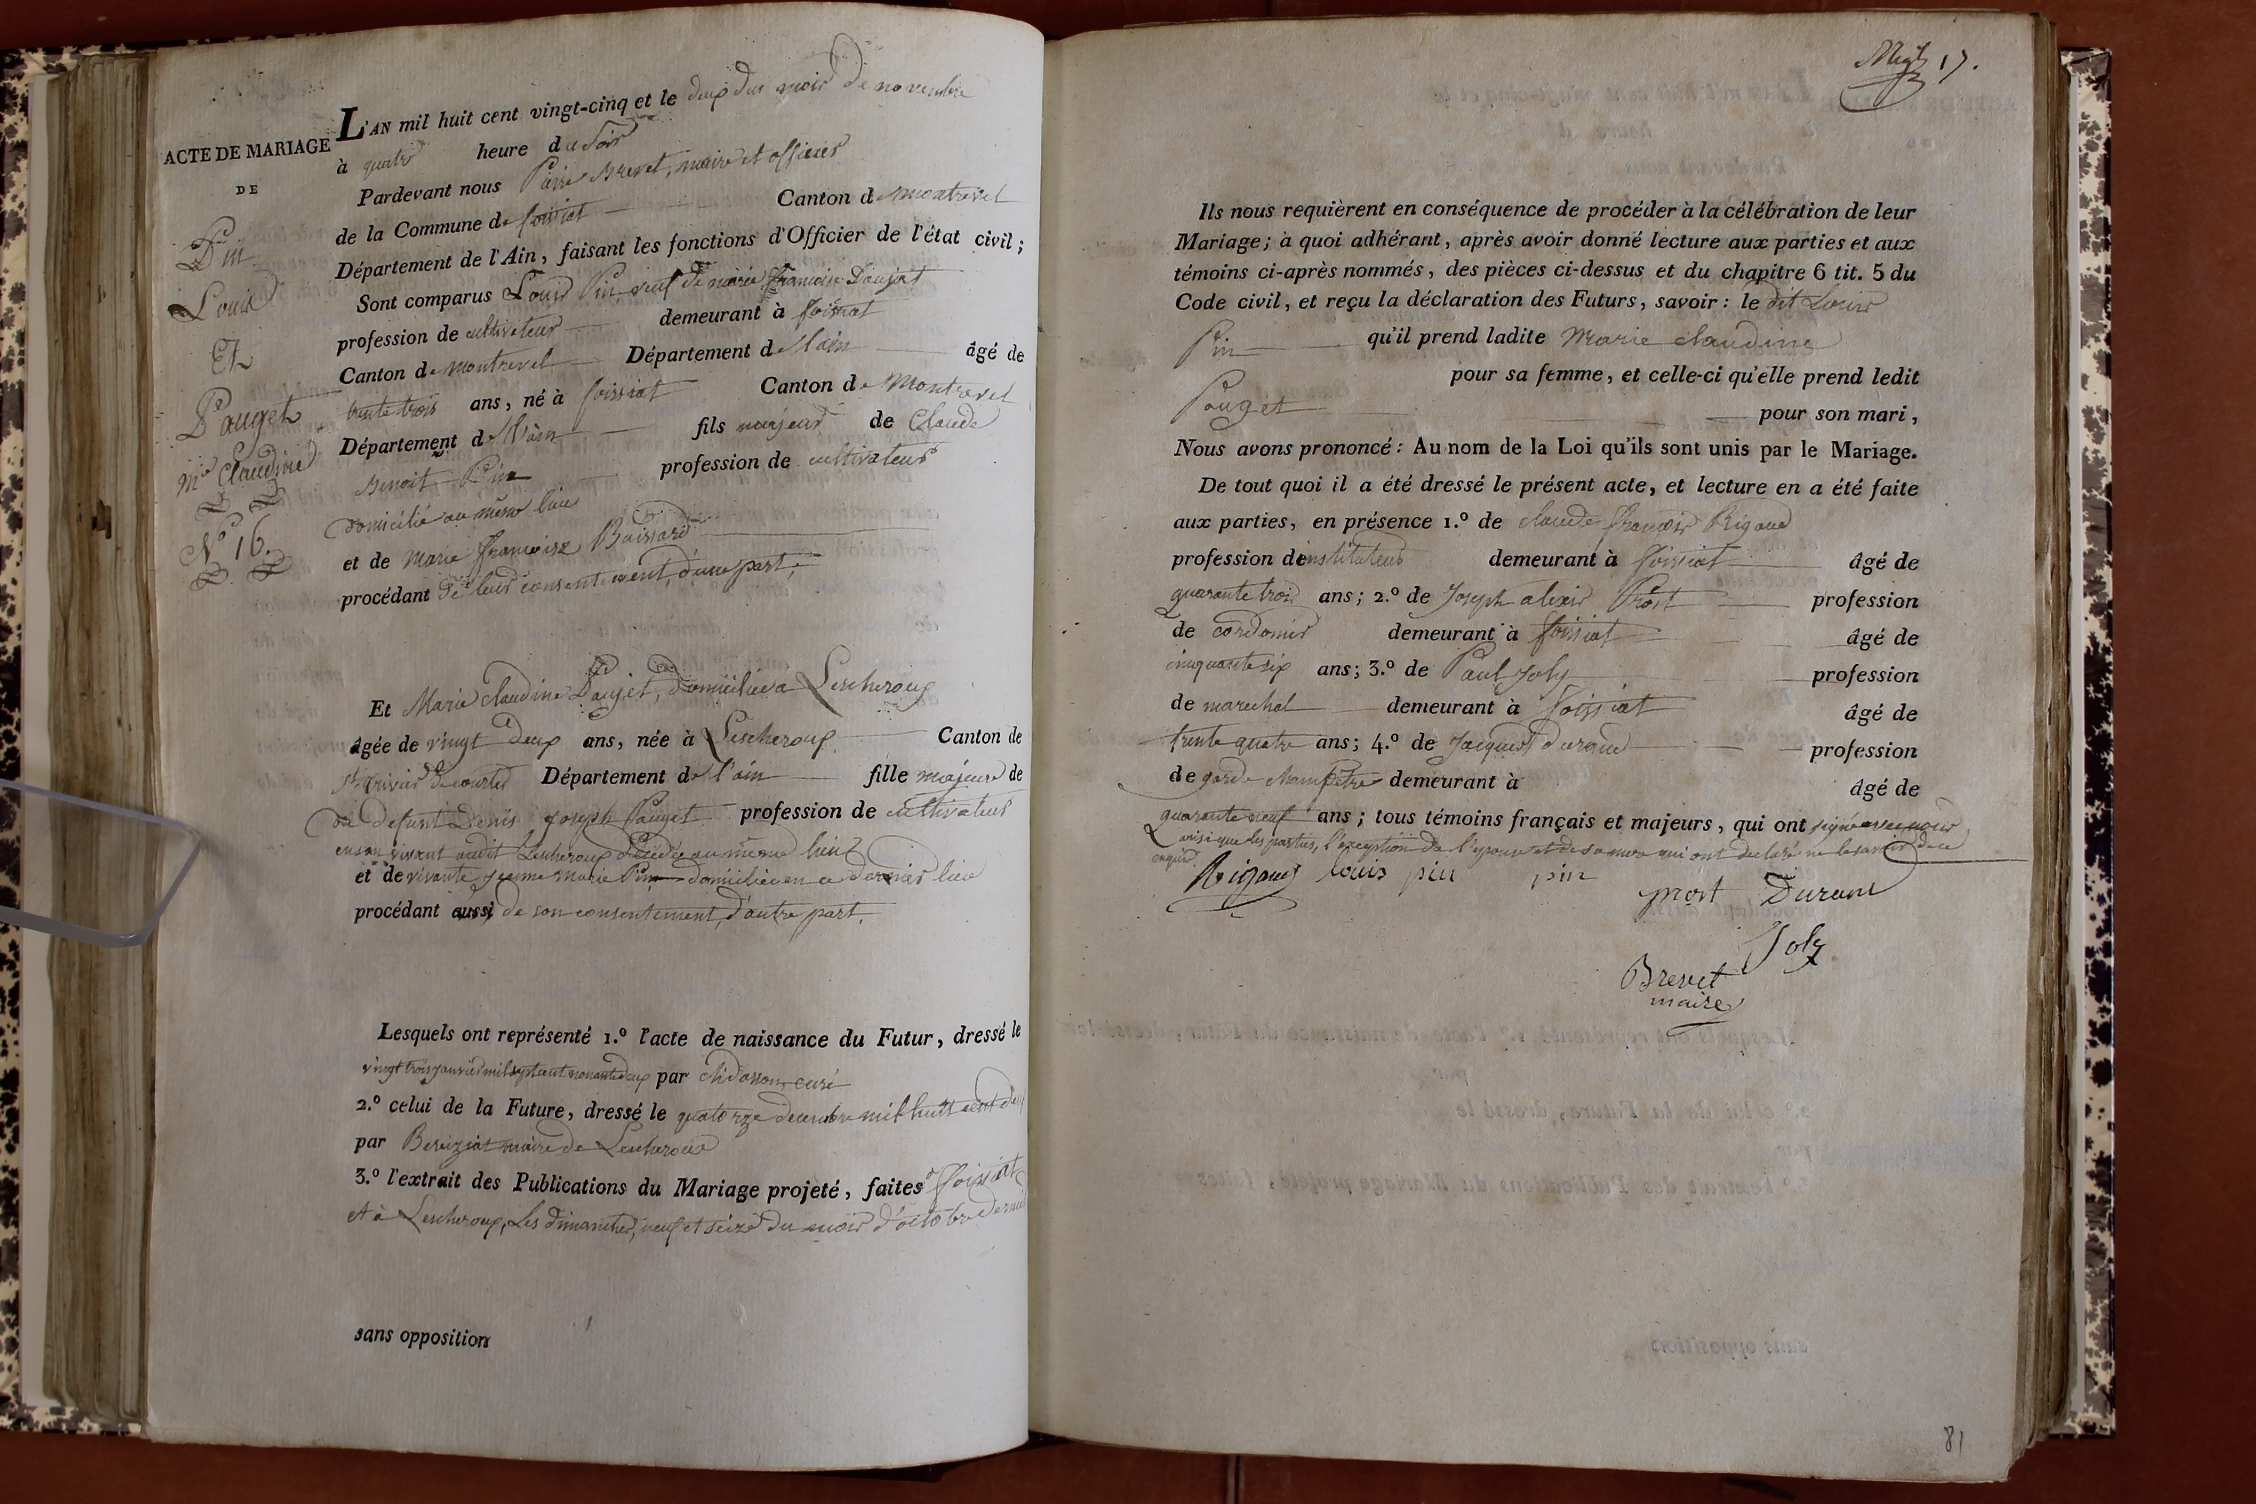 ACTE DE MARIAGE
DE
Pin
Louis
Et
Pauget
Mie Claudine
N° 16.
L'AN mil huit cent vingt-cinq et le deux du mois de novembre
à quatre heure du soir
Pardevant nous Brevet, maire et officier
de la Commune de foissiat Canton de montrevel
Département de l'Ain, faisant les fonctions d'Officier de l'état civil;
Sont comparus Louis Pin veuf de marie francoise
profession de cultivateur demeurant à foissiat
Canton de montrevel Département de l'ain âgé de
trente trois ans, né à foissiat Canton de Montrevel
Département de l'ain fils majeur de Claude
Benoit Pin profession de cultivateur
domicilié au même lieu
et de marie francoise Buissard
procédant de leur consentement, d'une part;
Et Marie claudine Paujet, domiciliée à Lescheroux
âgée de vingt deux ans, née à Lescheroux Canton de
st trivier de courtes Département de l'ain fille majeure de
de defunt Denis joseph Pauget profession de cultivateur
en son vivant audit Lescheroux Décédé au même lieu
et de vivante jeanne marie Pin domiciliée en ce dernier lieu
procédant aussi de son consentement, d'autre part.
Lesquels ont représenté 1.º l'acte de naissance du Futur, dressé le
vingt trois janvier mil sept cent nonante deux par curé
2.º celui de la Future, dressé le quatorze decembre mil huit cent deux
par Bereiziat maire de Lescheroux
3.º l'extrait des Publications du Mariage projeté, faites à foissiat
et à Lescheroux, Les dimanches, neuf et seize du mois d'octobre dernier
sans opposition
17.
Ils nous requièrent en conséquence de procéder à la célébration de leur
Mariage; à quoi adhérant, après avoir donné lecture aux parties et aux
témoins ci-après nommés, des pièces ci-dessus et du chapitre 6 tit. 5 du
Code civil, et reçu la déclaration des Futurs, savoir: le dit Louis
Pin qu'il prend ladite Marie claudine
pour sa femme, et celle-ci qu'elle prend ledit
Pouget pour son mari,
Nous avons prononcé: Au nom de la Loi qu'ils sont unis par le Mariage.
De tout quoi il a été dressé le présent acte, et lecture en a été faite
aux parties, en présence 1.º de claude françois Rigaud
profession de instituteur demeurant à foissiat âgé de
quarante trois ans; 2.º de Joseph alexis Prost profession
de cordonier demeurant à foissiat âgé de
cinquante six ans; 3.º de Paul Joly profession
de marechal demeurant à foissiat âgé de
trente quatre ans; 4.º de Jacques durand profession
de garde champetre demeurant à âgé de
quarante neuf ans; tous témoins français et majeurs, qui ont signé avec nous
ainsi que les parties, l'exception de l'epouse et de sa mere qui ont declaré ne le savoir de ce
enquis.
Rigaud louis pin pin
prost Durand
Joly
Brevet
maire
81